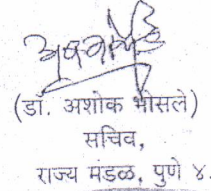 (डॉ. अशोक भोसले)
सचिव,
राज्य मंडळ, पुणे ४.